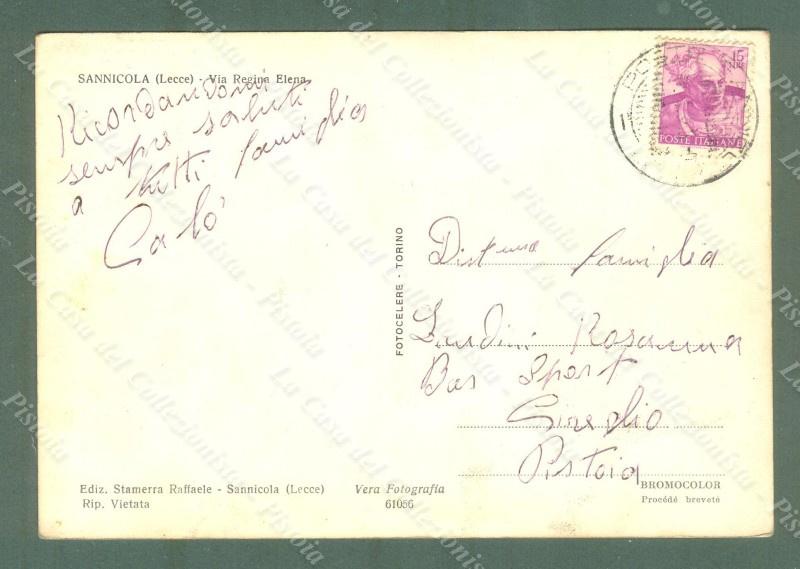 SANNICOLA (Lecce) - Via Regina Elena
Ricordandomi
sempre saluti
a tutti famiglia
Calò
15
POSTE ITALIANE
FOTOCELERE - TORINO
Dist.ma famiglia
Landini Rosanna
Bar Sport
Gireglio
Pistoia
Ediz. Stamerra Raffaele - Sannicola (Lecce)
Rip. Vietata
Vera Fotografia
61056
BROMOCOLOR
Procédé breveté
La Casa del Collezionista - Pistoia